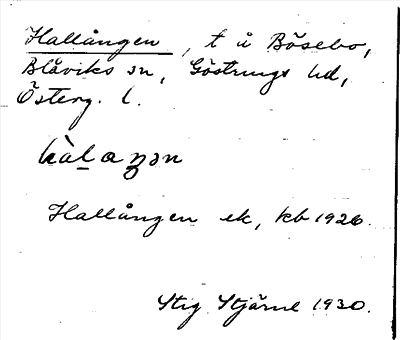 Hallången, t å Bösebo,
Blåviks sn, Göstrings hd,
Österg. l.
hàlaŋən
Hallången ek, kb 1926.
Stig Stjärne 1930.